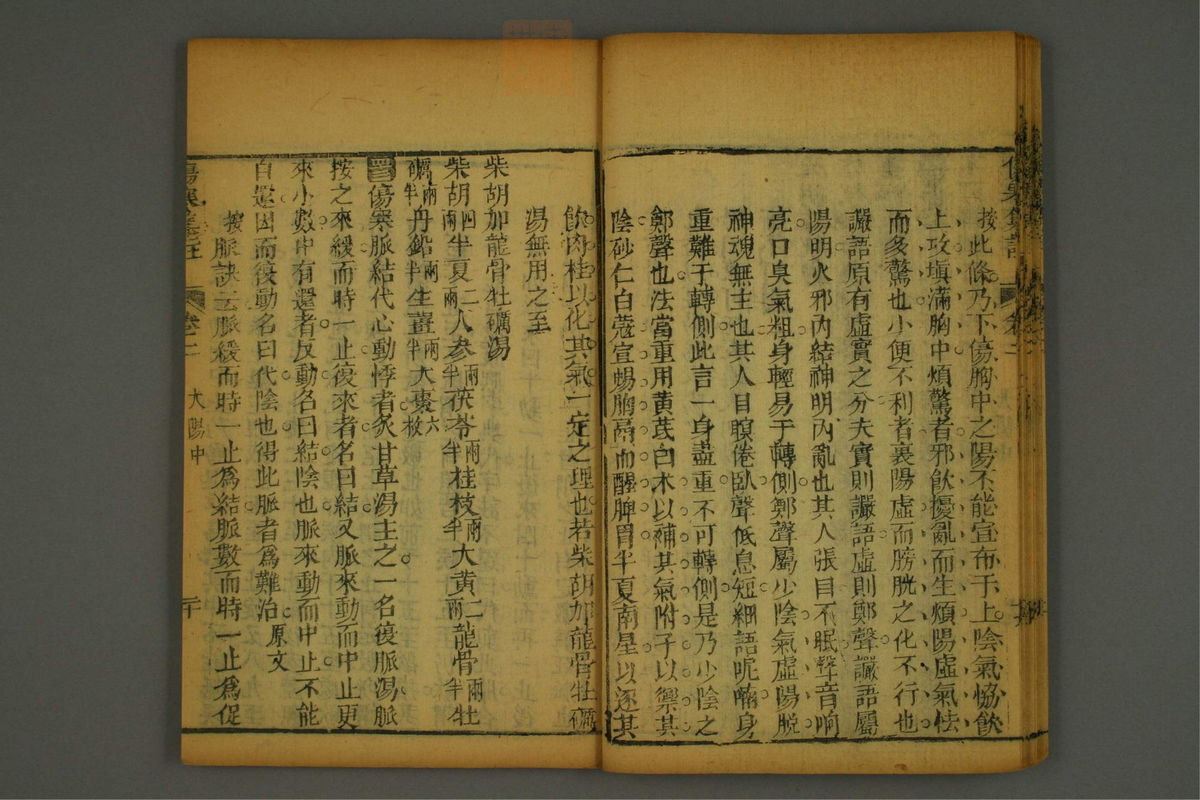 按此條乃下傷胸中之陽不能宣布于上陰氣恊飮
上攻塡滿胸中煩驚者邪飮擾亂而生煩陽虛氣怯
而多驚也小便不利者裏陽虛而膀胱之化不行也
讝語原有虛實之分夫實則讝語虛則鄭聲讝語屬
陽明火邪內結神明內亂也其人張目不眠聲音响
亮口臭氣粗身輕易于轉側鄭聲屬少陰氣虛陽脫
神魂無主也其人目瞑倦臥聲低息短細語呢喃身
重難于轉側此言一身盡重不可轉側是乃少陰之
鄭聲也法當重用黃茋白朮以補其氣附子以禦其
陰砂仁白蔻宣暢胸膈而醒脾胃半夏南星以逐其
飮肉桂以化其氣一定之理也若柴胡加龍骨牡礪
湯無用之至
柴胡加龍骨牡礪湯
柴胡四兩半夏二兩人參兩半茯苓兩半桂枝兩半大黃二兩龍骨兩半牡
礪兩半丹鉛兩半生薑兩半大棗六枚
傷寒脈結代心動悸者炙甘草湯主之一名復脈湯脈
按之來緩而時一止復來者名曰結又脈來動而中止更
來小數中有還者反動名曰結陰也脈來動而中止不能
自還因而復動名曰代陰也得此脈者爲難治原文
按脈訣云脈緩而時一止爲結脈數而時一止爲促
卷二
太陽中
二十